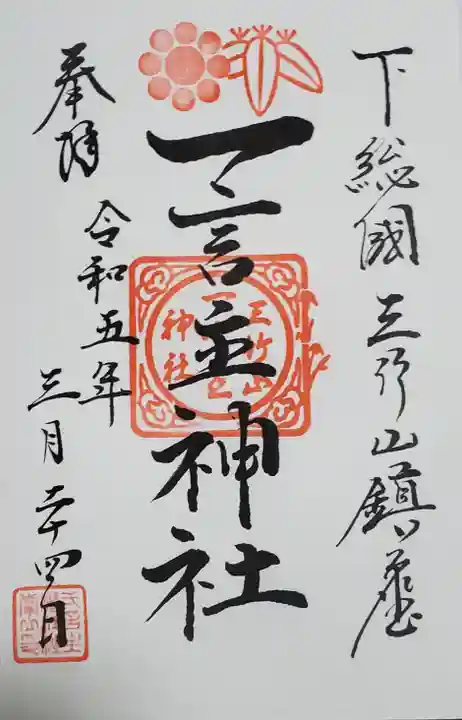 下総國三竹山鎮座
一言主神社
三竹山
一言主
神社
奉拝
令和五年
三月二十四日